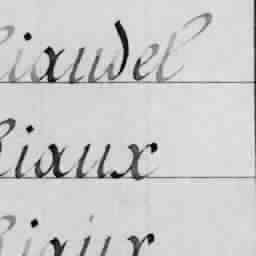 Riaudel
Riaux
Riaux